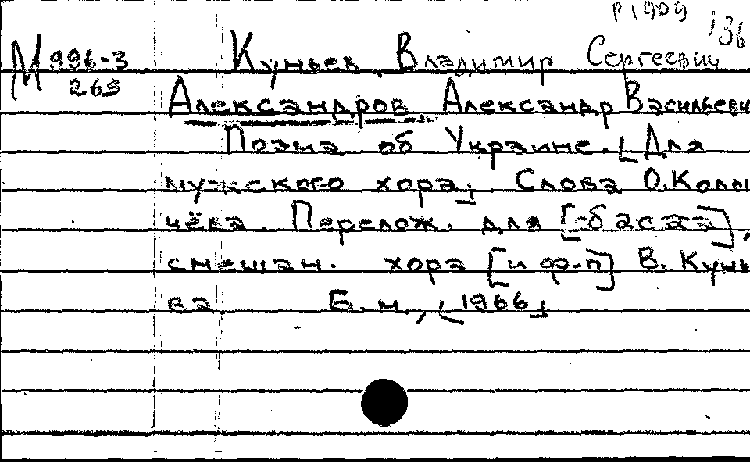 р 1909 136
М 996-3 Куньев Владимир Сергеевич
263
Александров Александр Васильеви
Поэма об Украине. [Для
мужского хора]. Слова О. Колы
чёва. Перелож. для [баса],
смешан. хора [и ф-п] В. Кунь
ва Б. м., [1966]